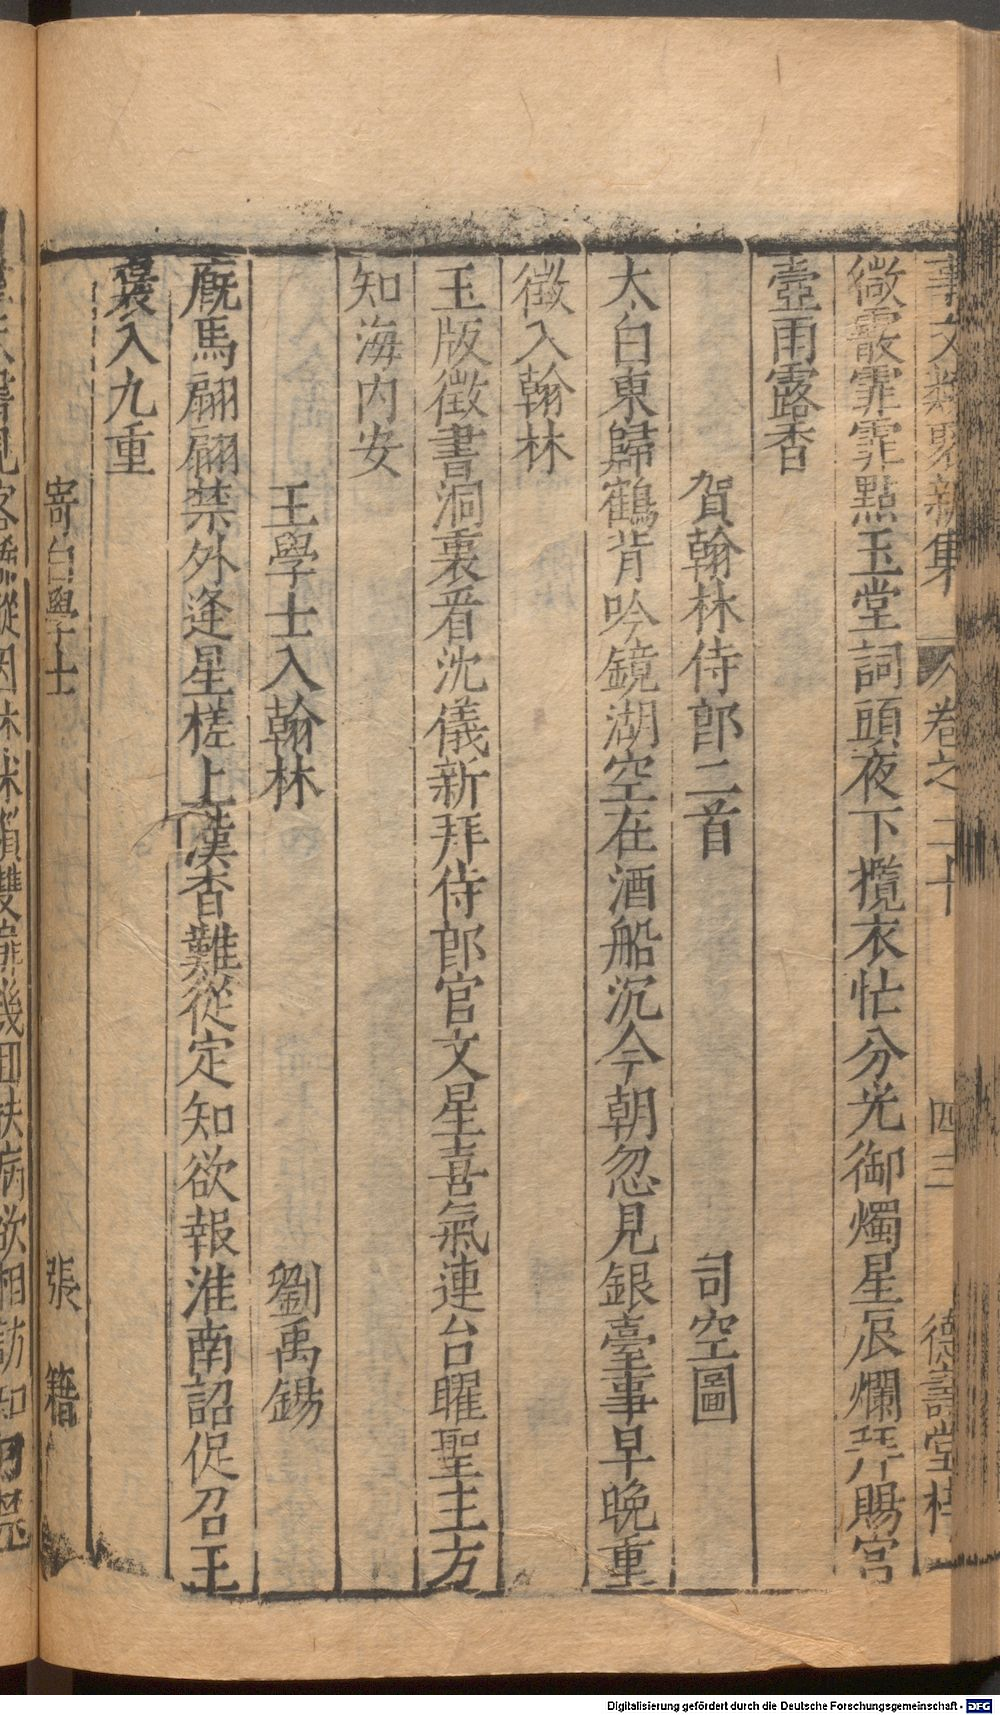 事文類聚新集 卷之二十 四三 德壽堂梓
微霰霏霏點玉堂詞頭夜下攬衣忙分光御燭星辰爛拜賜宮
壺雨露香
賀翰林侍郎二首 司空圖
太白東歸鶴背吟鏡湖空在酒船沉今朝忽見銀臺事早晚重
徵入翰林
玉版徵書洞裏看沈儀新拜侍郎官文星喜氣連台曜聖主方
知海內安
王學士入翰林 劉禹錫
廐馬翩翩禁外逢星槎上漢杳難從定知欲報淮南詔促召王
褒入九重
寄白學士 張籍
見客 縱因休沐 雙扉幾回扶病欲相訪知
Digitalisierung gefördert durch die Deutsche Forschungsgemeinschaft - DFG